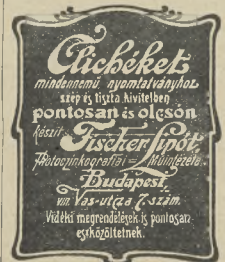 Clichéket
mindennemű nyomtatványhoz
szép és tiszta kivitelben
pontosan és olcsón
készít:
Fischer Lipót,
Photozinkografiai = Műintézete.
Budapest,
VIII. Vas-utca 7. szám.
Vidéki megrendelések is pontosan
eszközöltetnek.